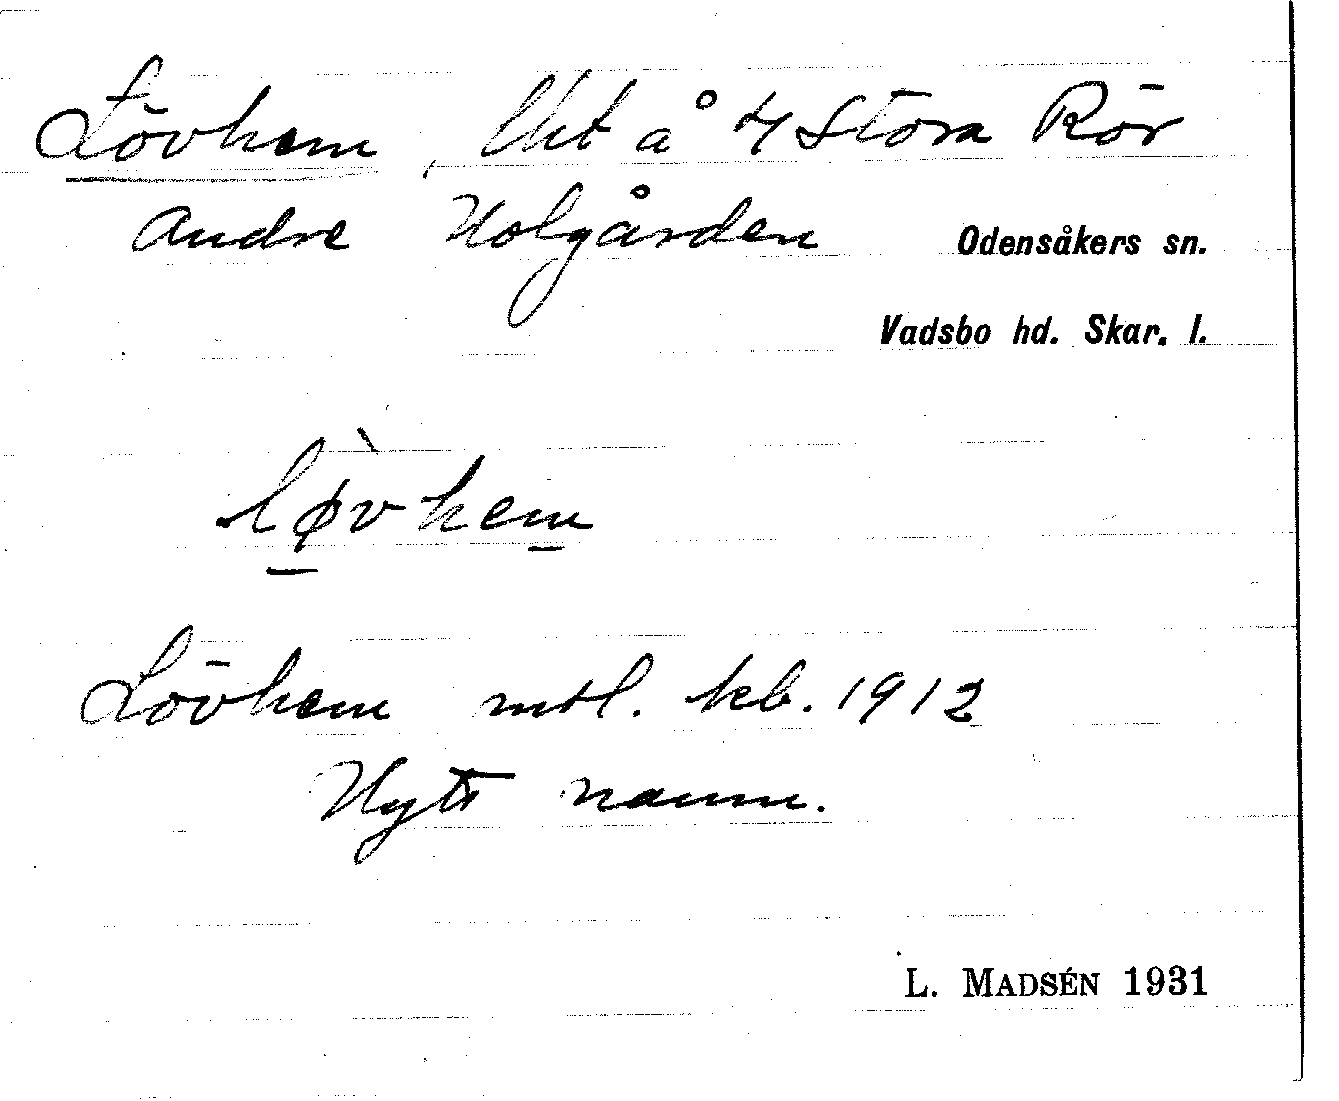 Lövhem, lht å 4/1 Stora Rör
Andre Holgården Odensåkers sn.
Vadsbo hd. Skar. l.
lø̀vhem
Lövhem mtl. kb. 1912
Nytt namn.
L. MADSÉN 1931